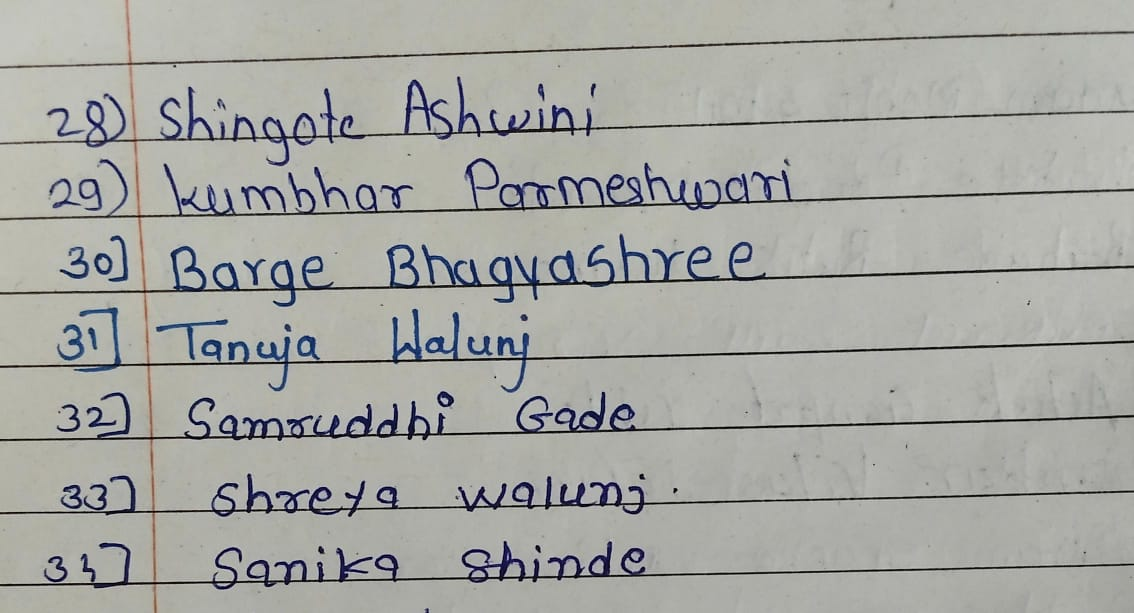 28) Shingote Ashwini
29) Kumbhar Parmeshwari
30] Barge Bhagyashree
31] Tanuja Walunj
32] Samruddhi Gade
33] Shreya Walunj.
34] Sanika Shinde